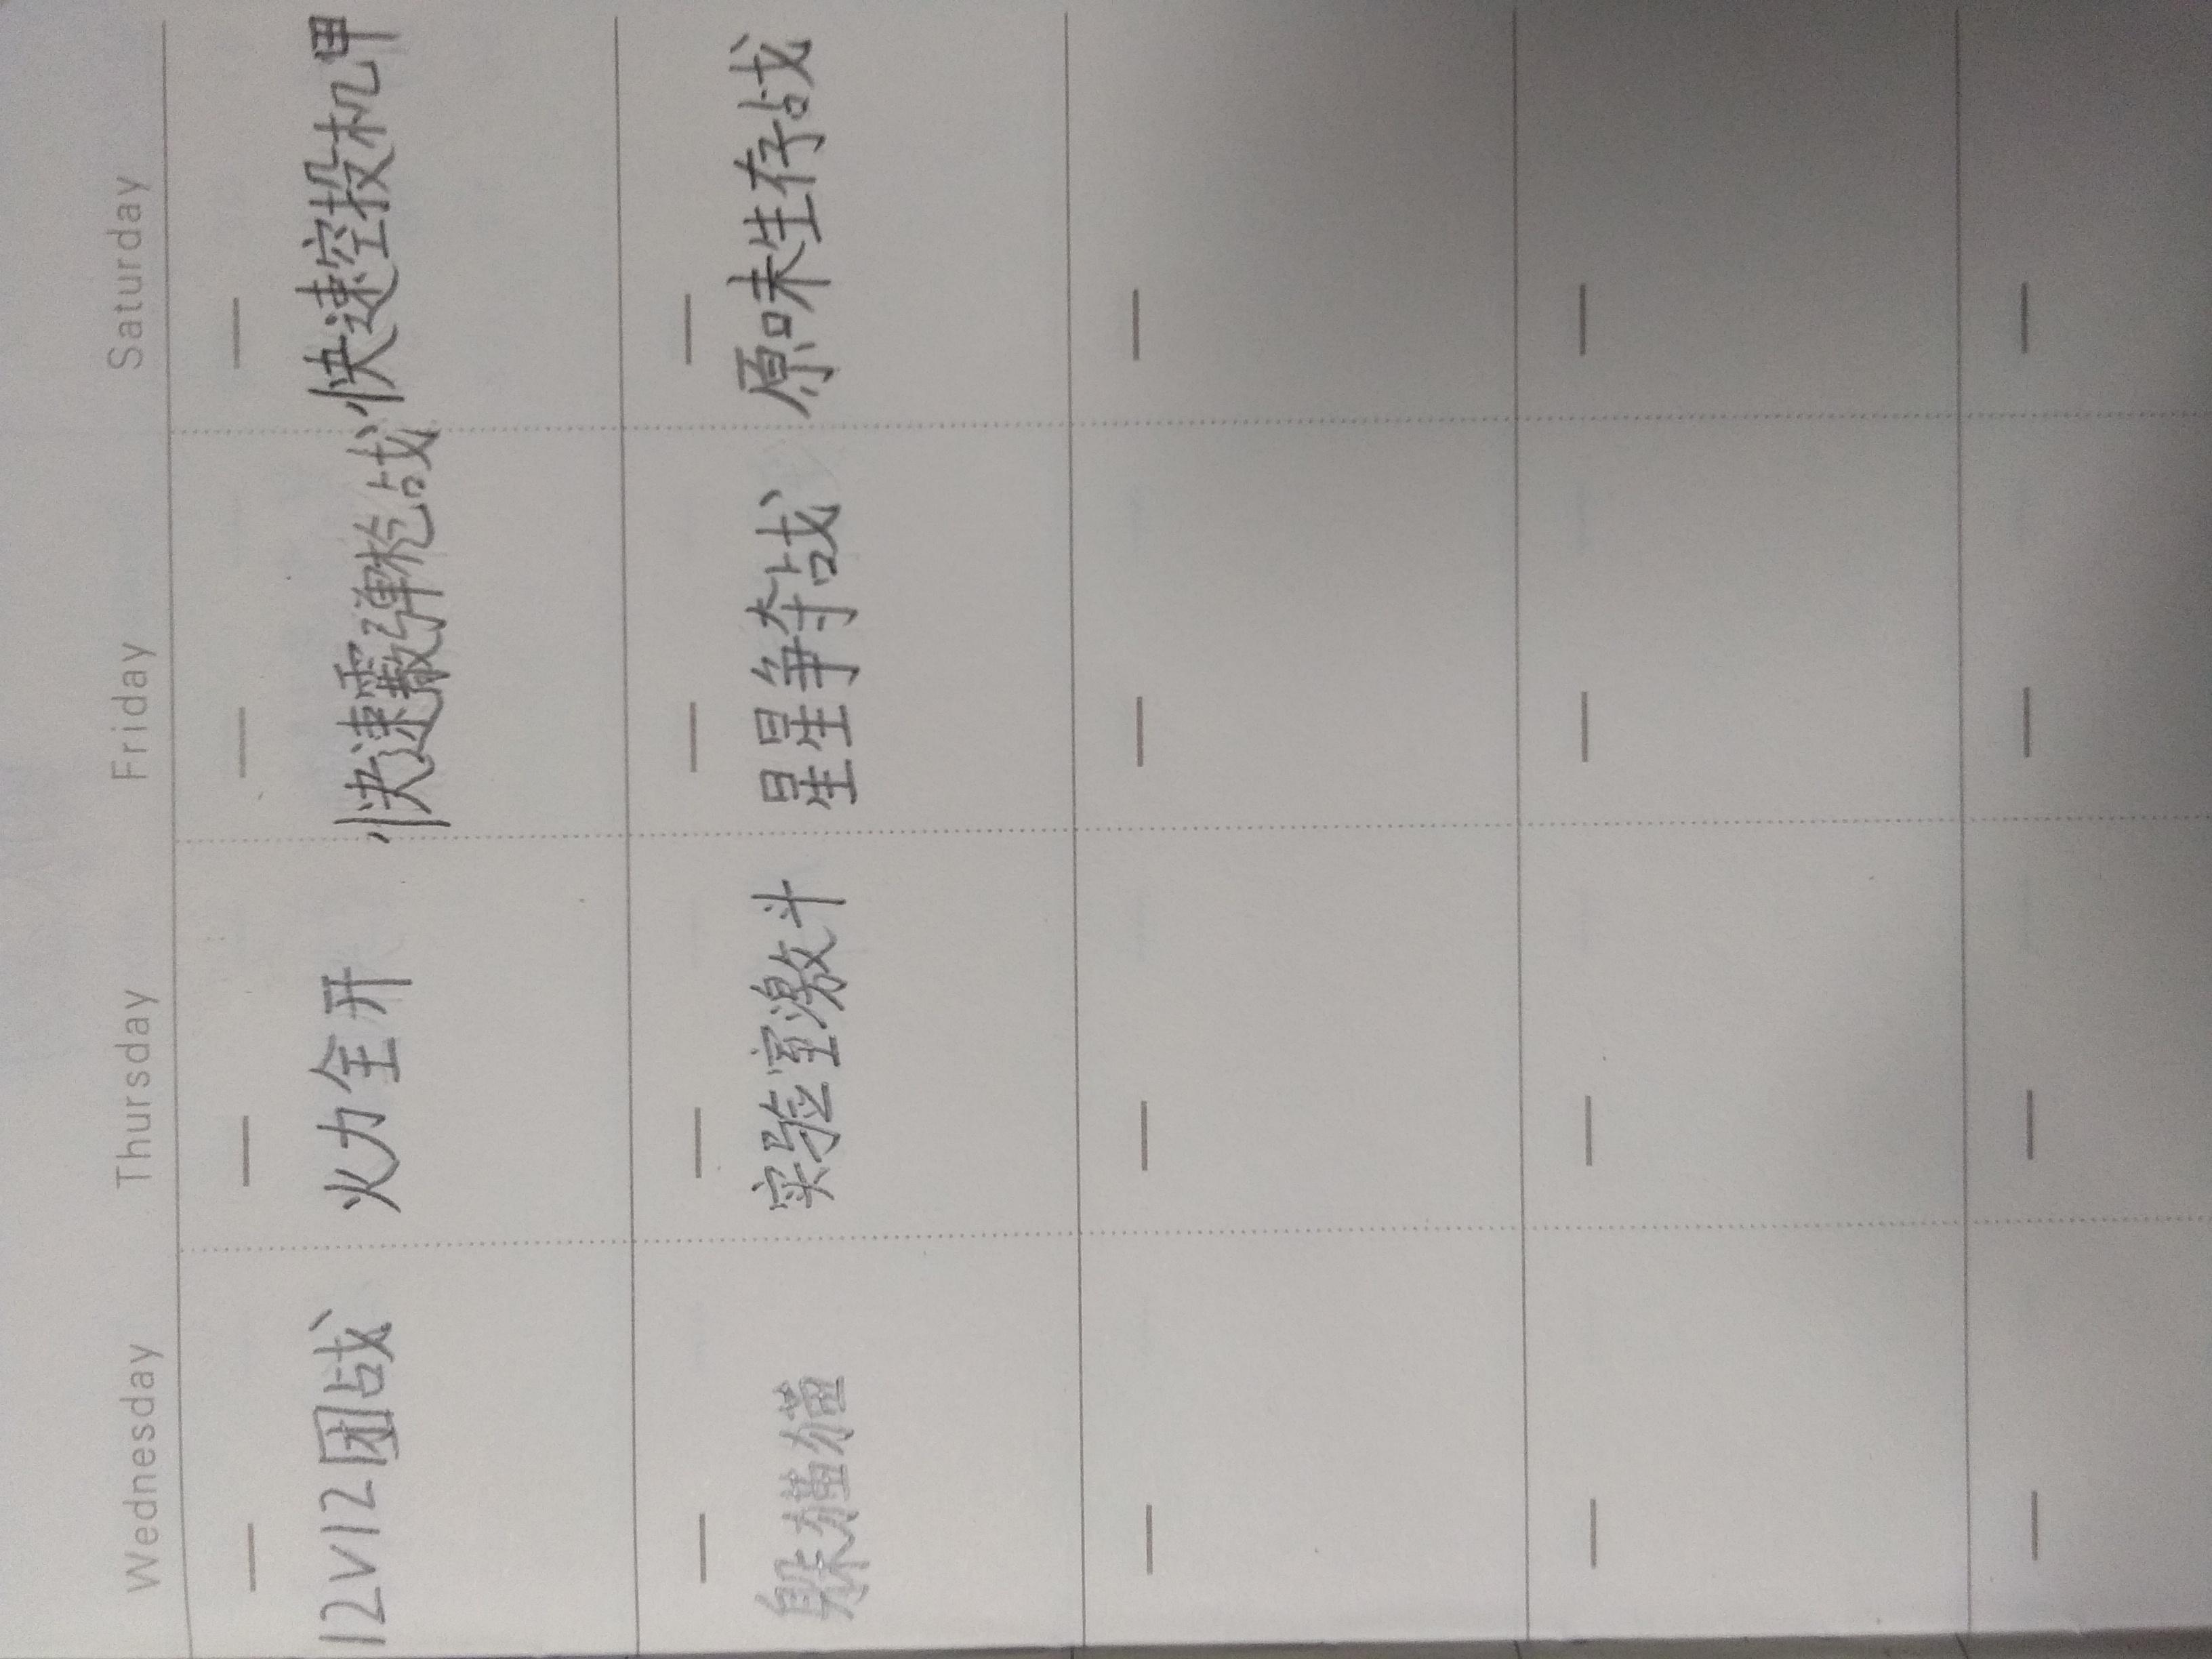 Wednesday Thursday Friday Saturday
12V12团战 火力全开 快速霰弹枪战 快速空投机甲
躲猫猫 实验室激斗 星星争夺战 原味生存战